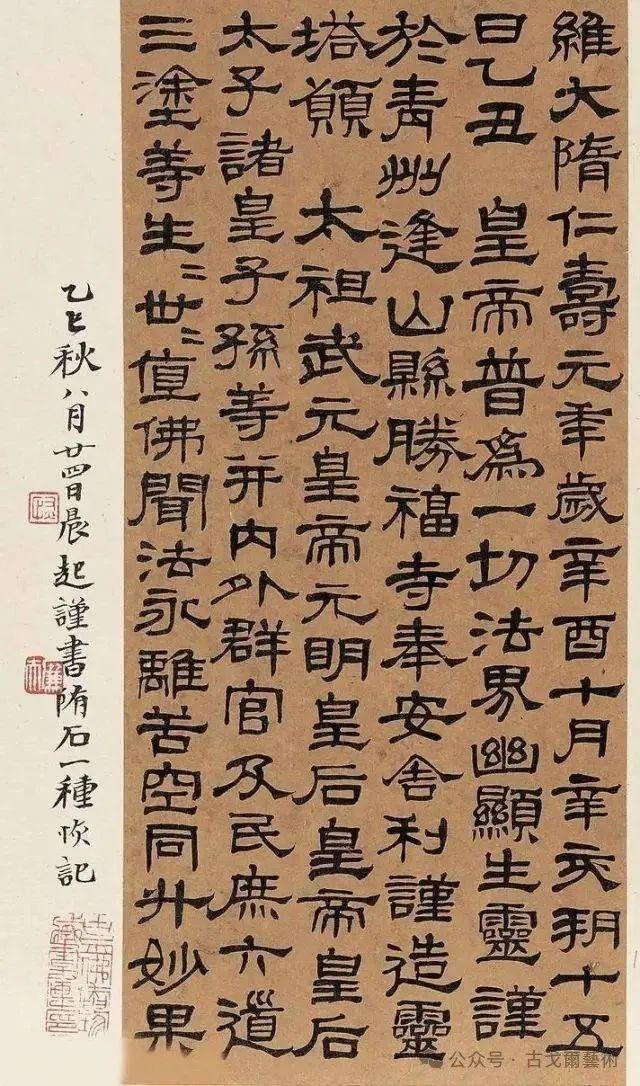 維大隋仁壽元年歲辛酉十月辛亥朔十五
日乙丑 皇帝普爲一切法界幽顯生靈謹
於青州逢山縣勝福寺奉安舍利謹造靈
塔願 太祖武元皇帝元明皇后皇帝皇后
太子諸皇子孫等并内外群官及民庶六道
三塗等生〻世〻值佛聞法永離苦空同升妙果
乙巳秋八月廿四日晨起謹書隋石一種 記
公众号·古戈爾藝術